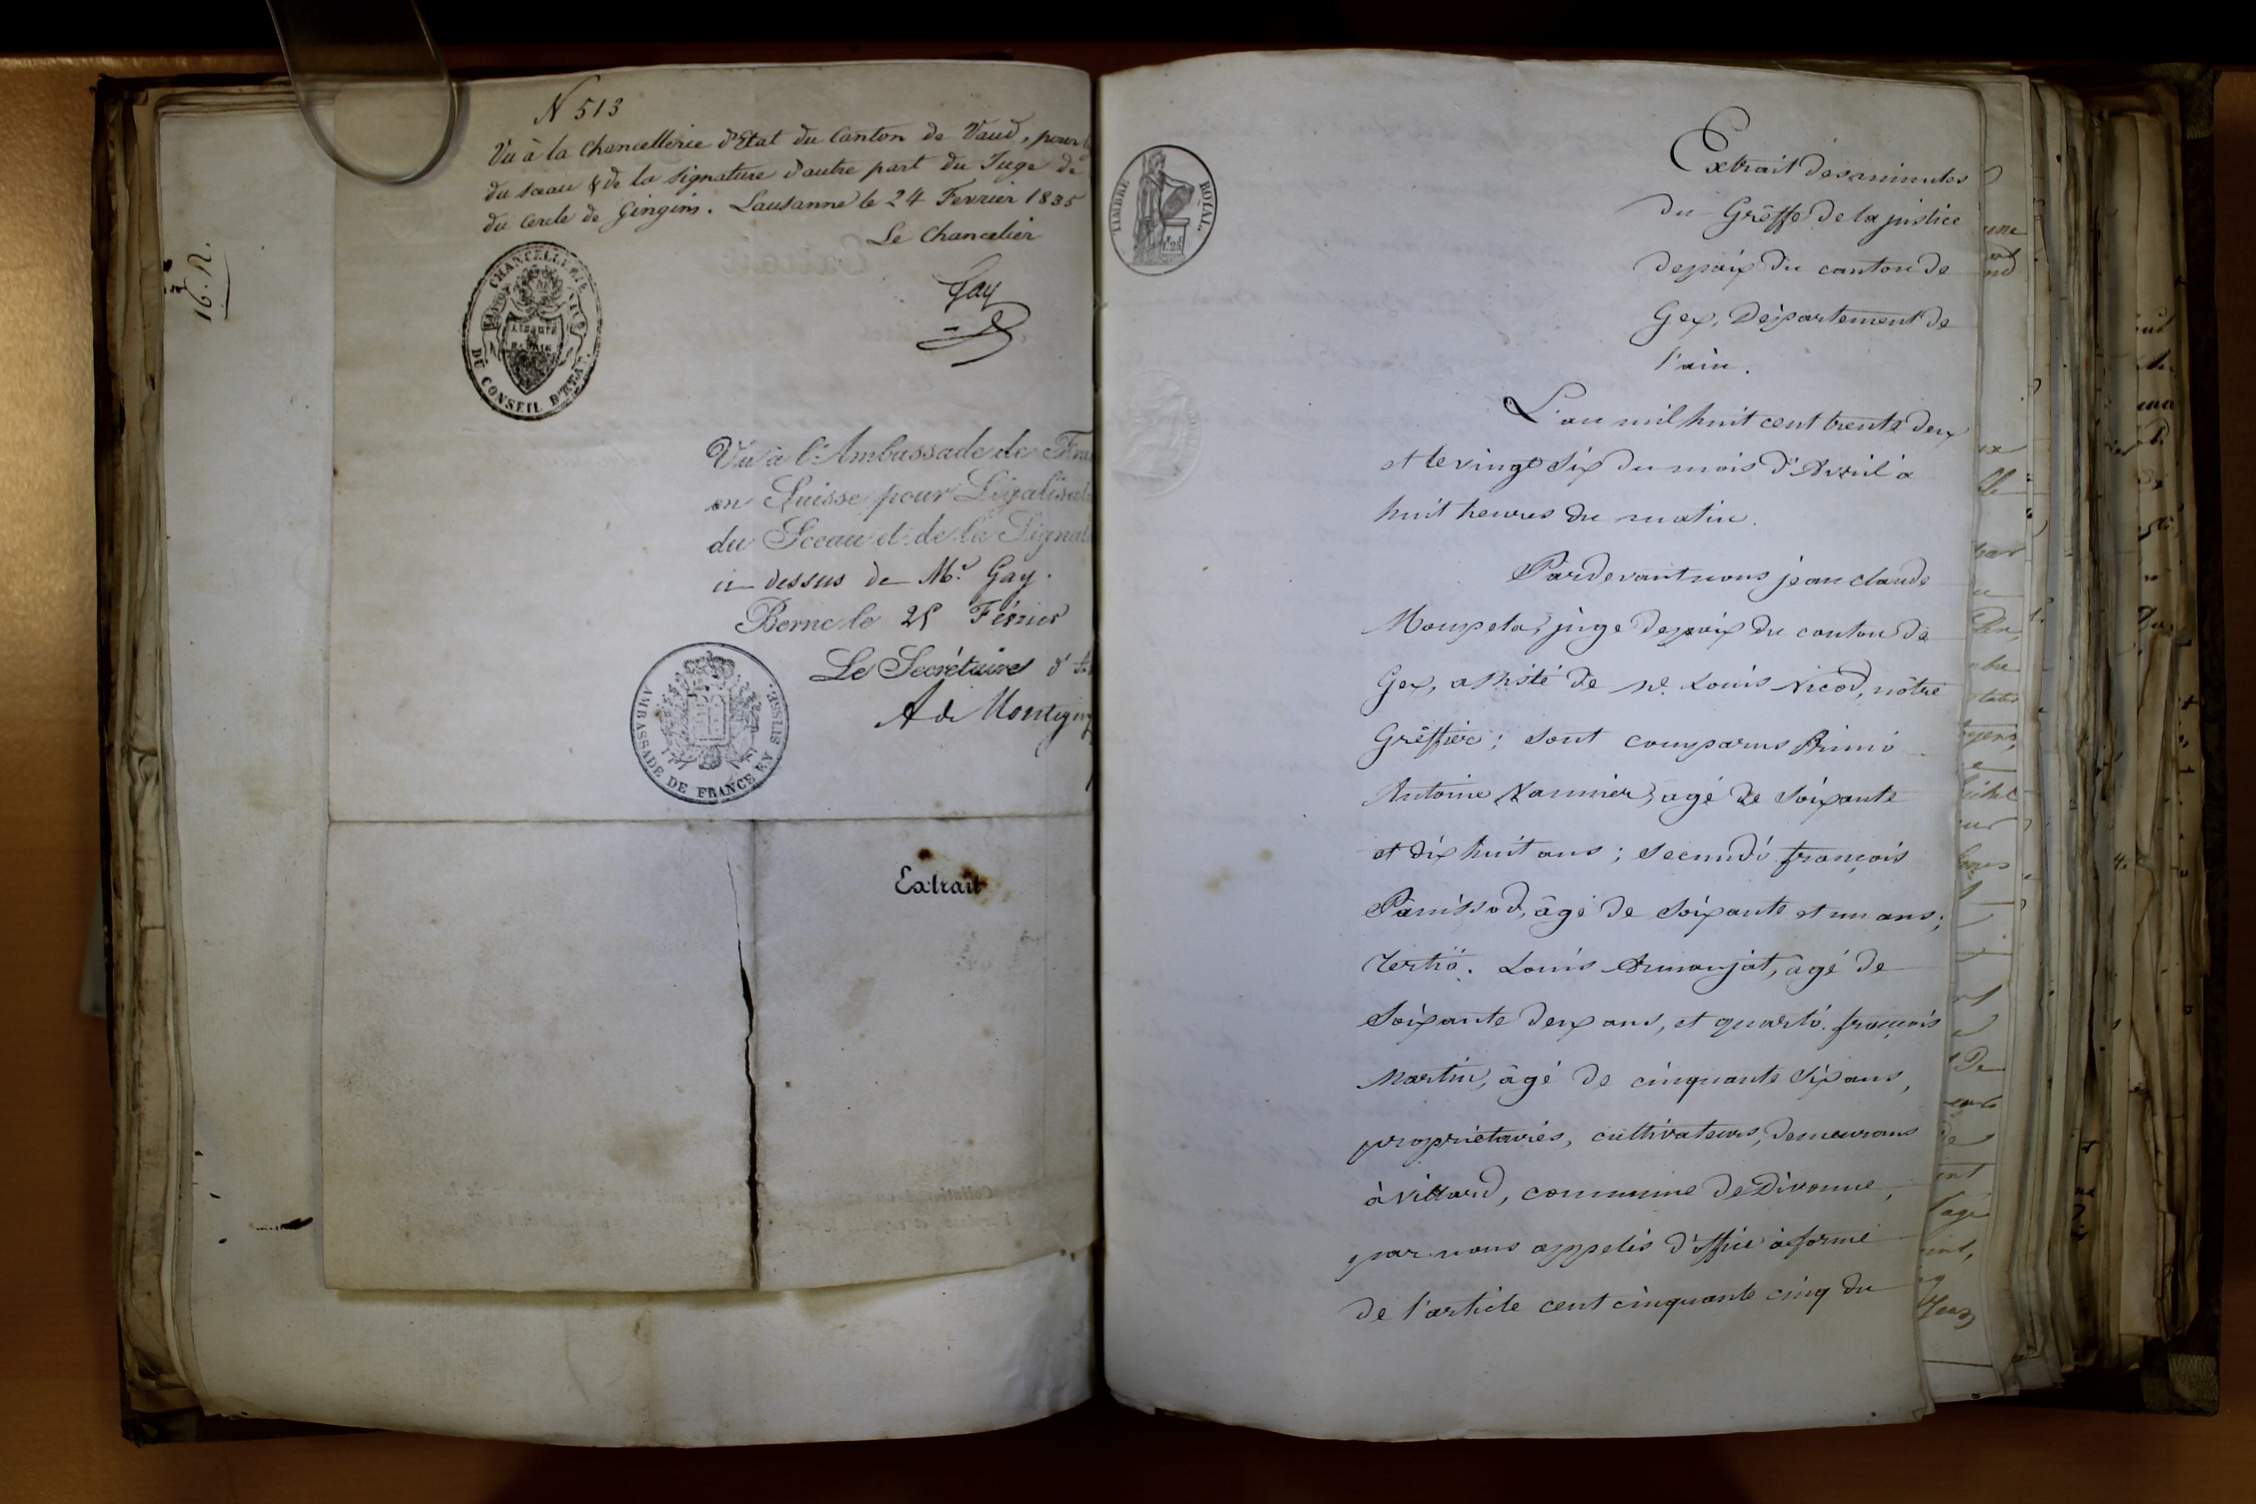 N 513
Vu à la Chancellerie d'Etat du Canton de Vaud, pour
du sceau & de la signature d'autre part du Juge de
du Cercle de Gingins. Lausanne le 24 Fevrier 1835
Le Chancelier
Gay
CHANCELLERIE
LIBERTÉ
PATRIE
DU CONSEIL D'ETAT
16. R.
Vu à l'Ambassade de Fra
en Suisse pour Légalisat
du Sceau et de la Signat
ci dessus de Mr. Gay.
Berne le 25 Février
Le Secrétaire d'
A de Montigny
AMBASSADE DE FRANCE EN SUISSE.
Extrait
TIMBRE ROYAL
Extrait des minutes
du Grêffe de la justice
depaix du canton de
Gex, Département de
l'ain.
L'an mil huit cent trente deux
et le vingt six du mois d'Avril à
huit heures du matin.
Pardevant nous jean claude
juge depaix du canton de
Gex, assisté de me. Louis Nicod, nôtre
Grêffier; sont comparus Primò
Antoine Vannier, agé de soixante
et dix huit ans; secundò françois
Panissod, âgé de soixante et un ans;
Tertiò. Louis Armanjat, âgé de
soixante deux ans, et quartò. françois
Martin, âgé de cinquante six ans,
propriétaires, cultivateurs, demeurans
à Villard, commune de Divonne,
par nous appelés d'office à forme
de l'article cent cinquante cinq du